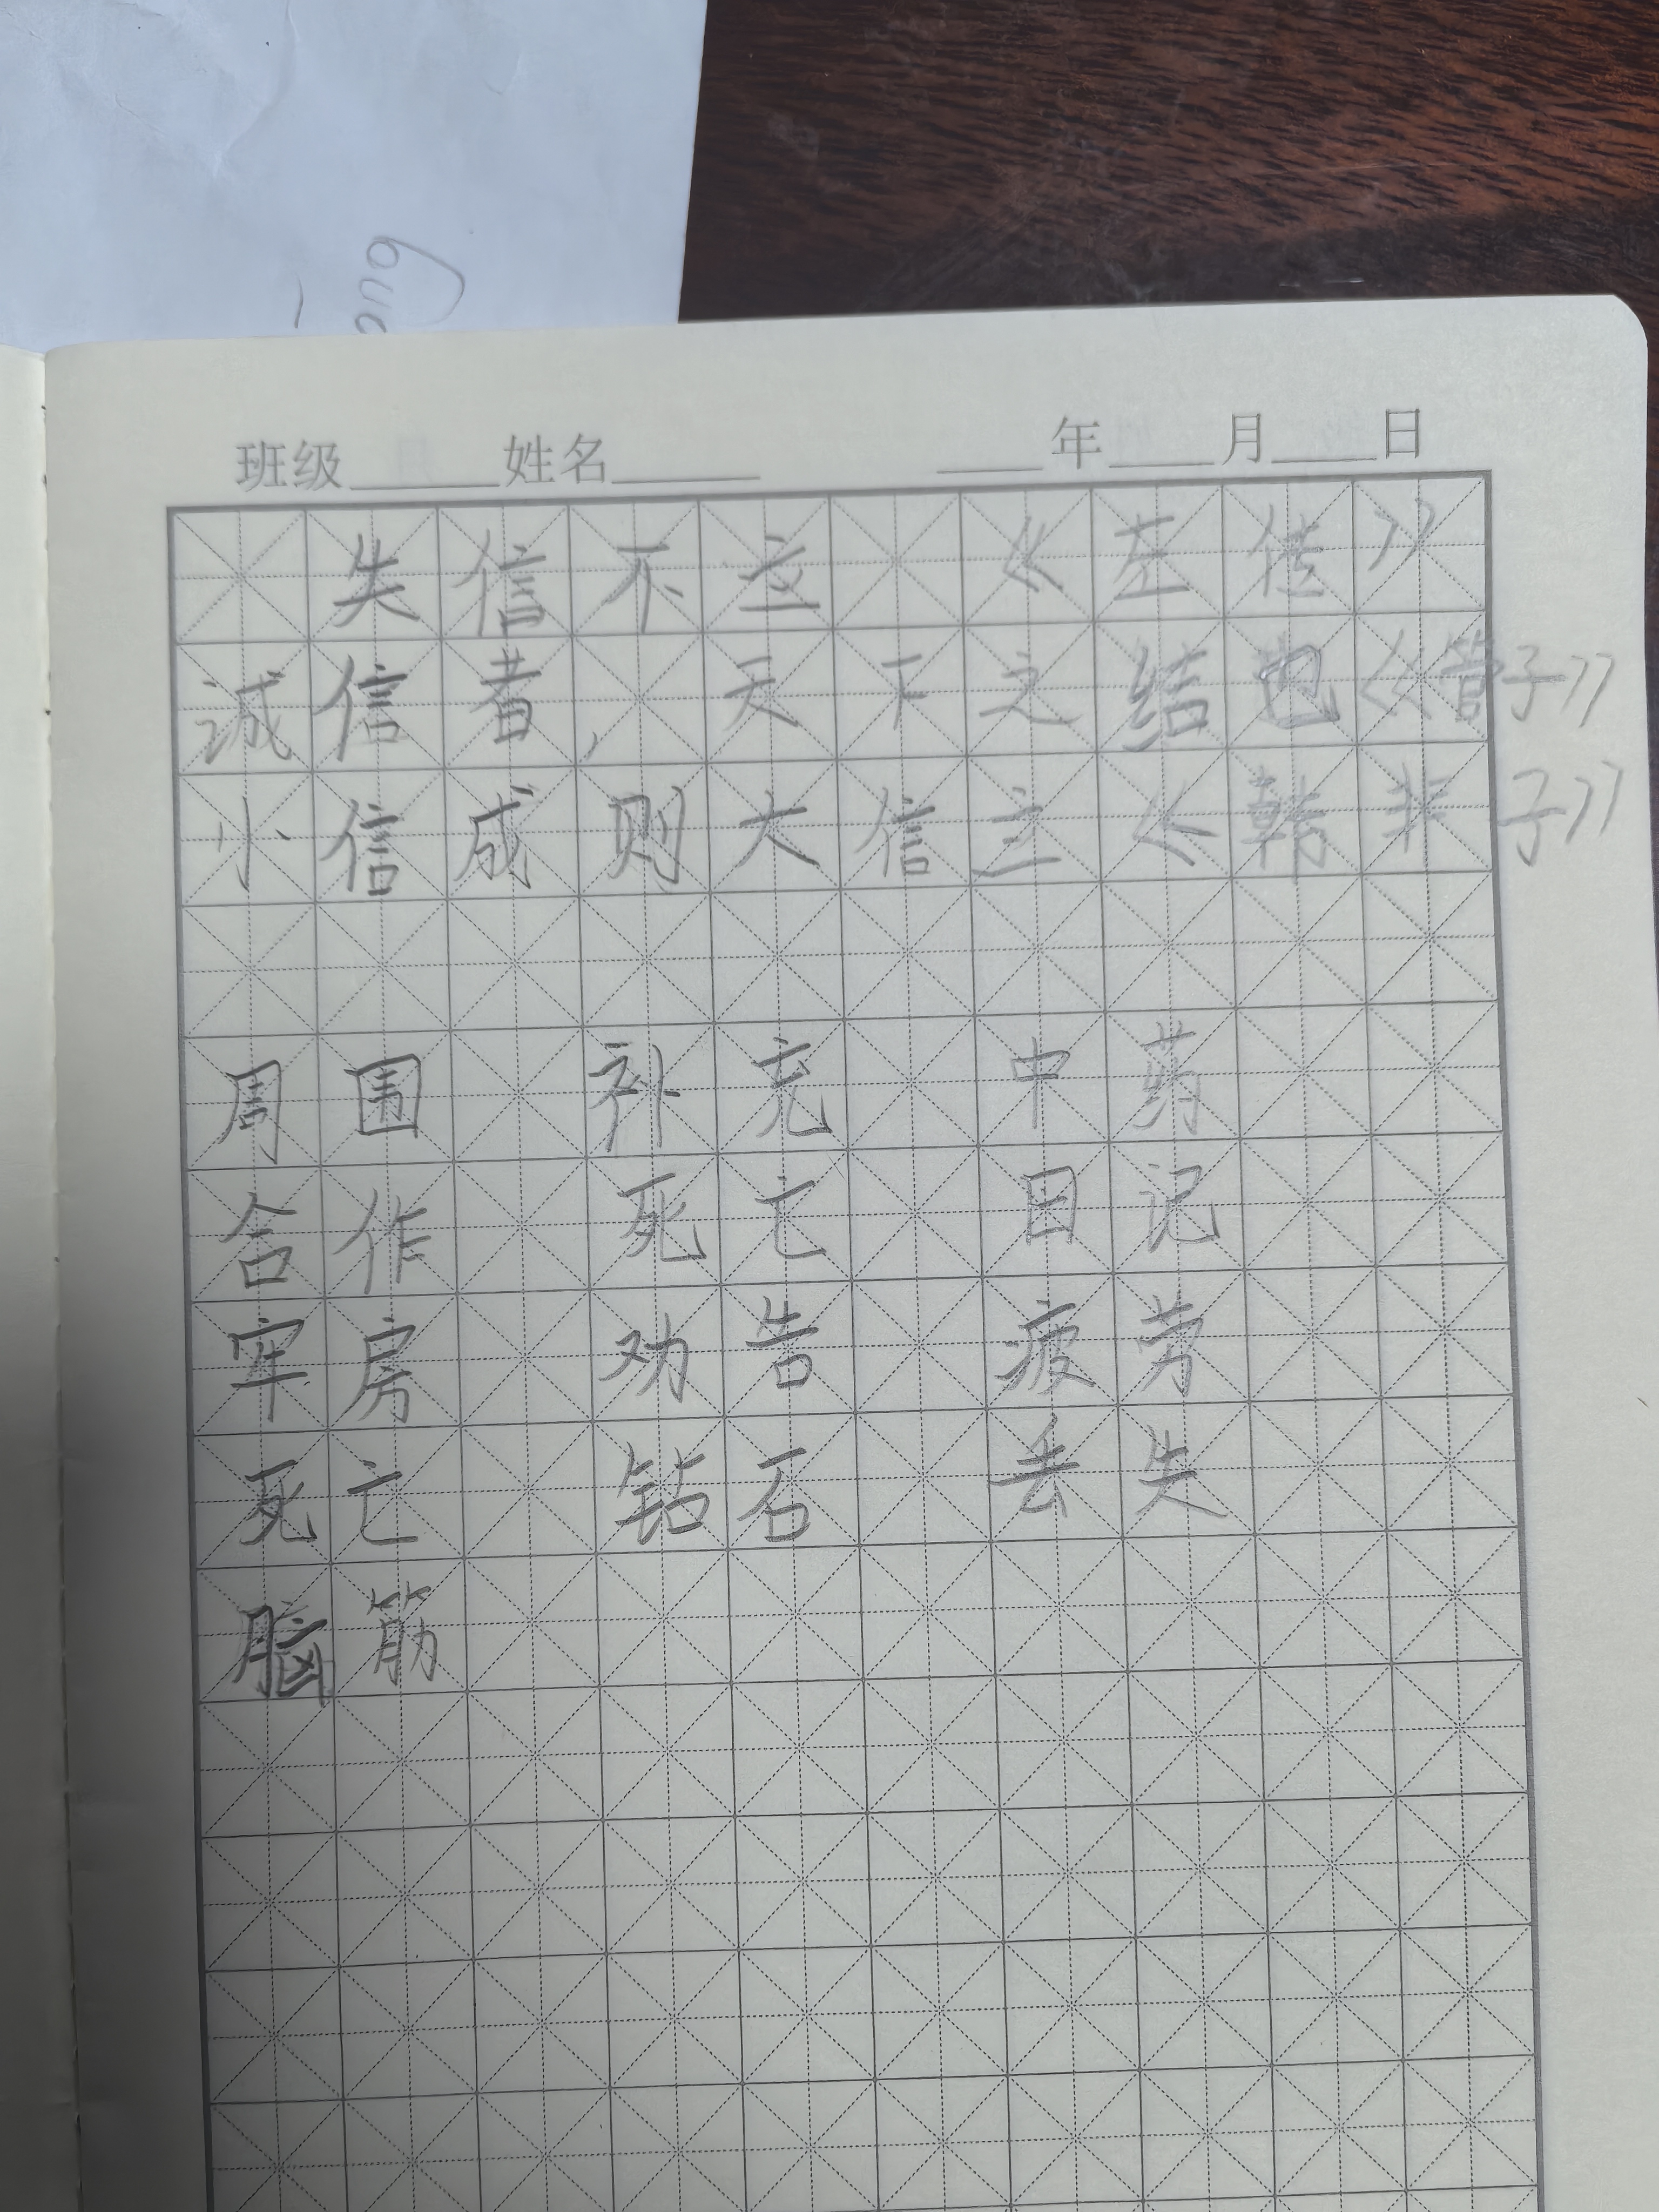 班级______姓名______ ____年____月____日
失信不立 《左传》
诚信者,天下之结也《管子》
小信成则大信立《韩非子》
周围 补充 中药
合作 死亡 日记
牢房 劝告 疲劳
死亡 钻石 丢失
脑筋